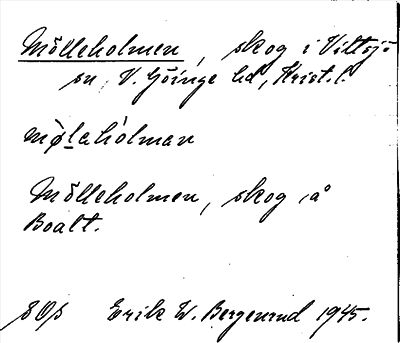 Mölleholmen, skog i Vittsjö
sn, V. Göinge hd, Krist. l.
møl̲ahòlman
Mölleholmen, skog å
Boalt.
Erik W. Bergenrud 1945.